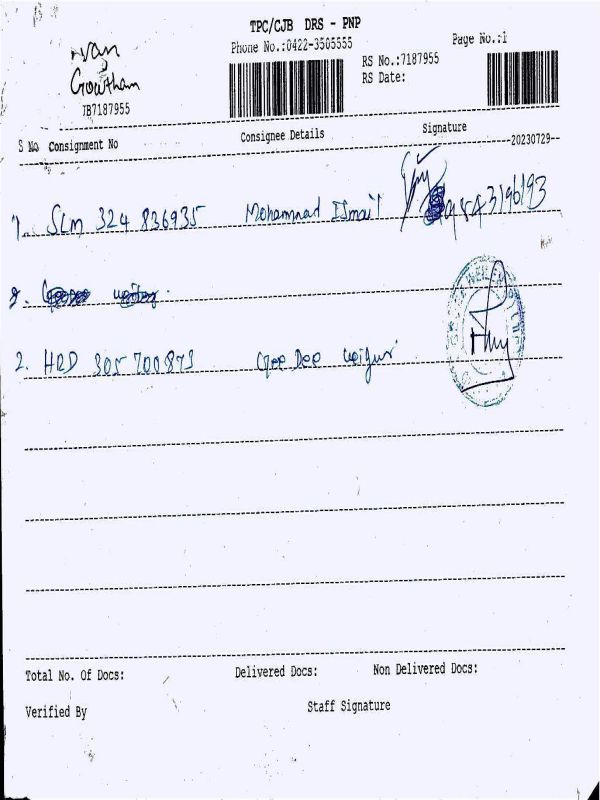 TPC/CJB DRS - PNP
Phone No.:0422-3505555
Page No.:1
Gowtham
RS No.:7187955
RS Date:
JB7187955
S No Consignment No Consignee Details Signature
--20230729--
1. SLM 324 836935 Mohammad Ismail 9843196193
2.
2. HRD 305700873
Total No. Of Docs: Delivered Docs: Non Delivered Docs:
Verified By Staff Signature